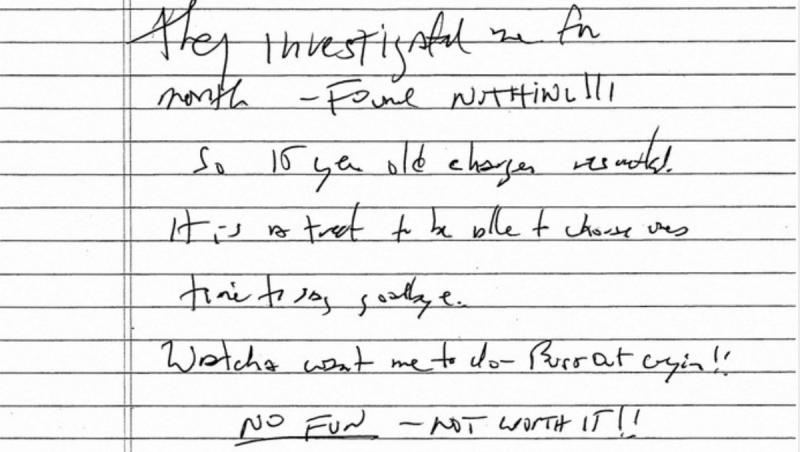 They investigated me for
month – FOUND NOTHING!!!
So year old charges
It is a treat to be able to choose ones
time to say goodbye.
Watcha want me to do – Burst out cryin!!
NO FUN – NOT WORTH IT!!